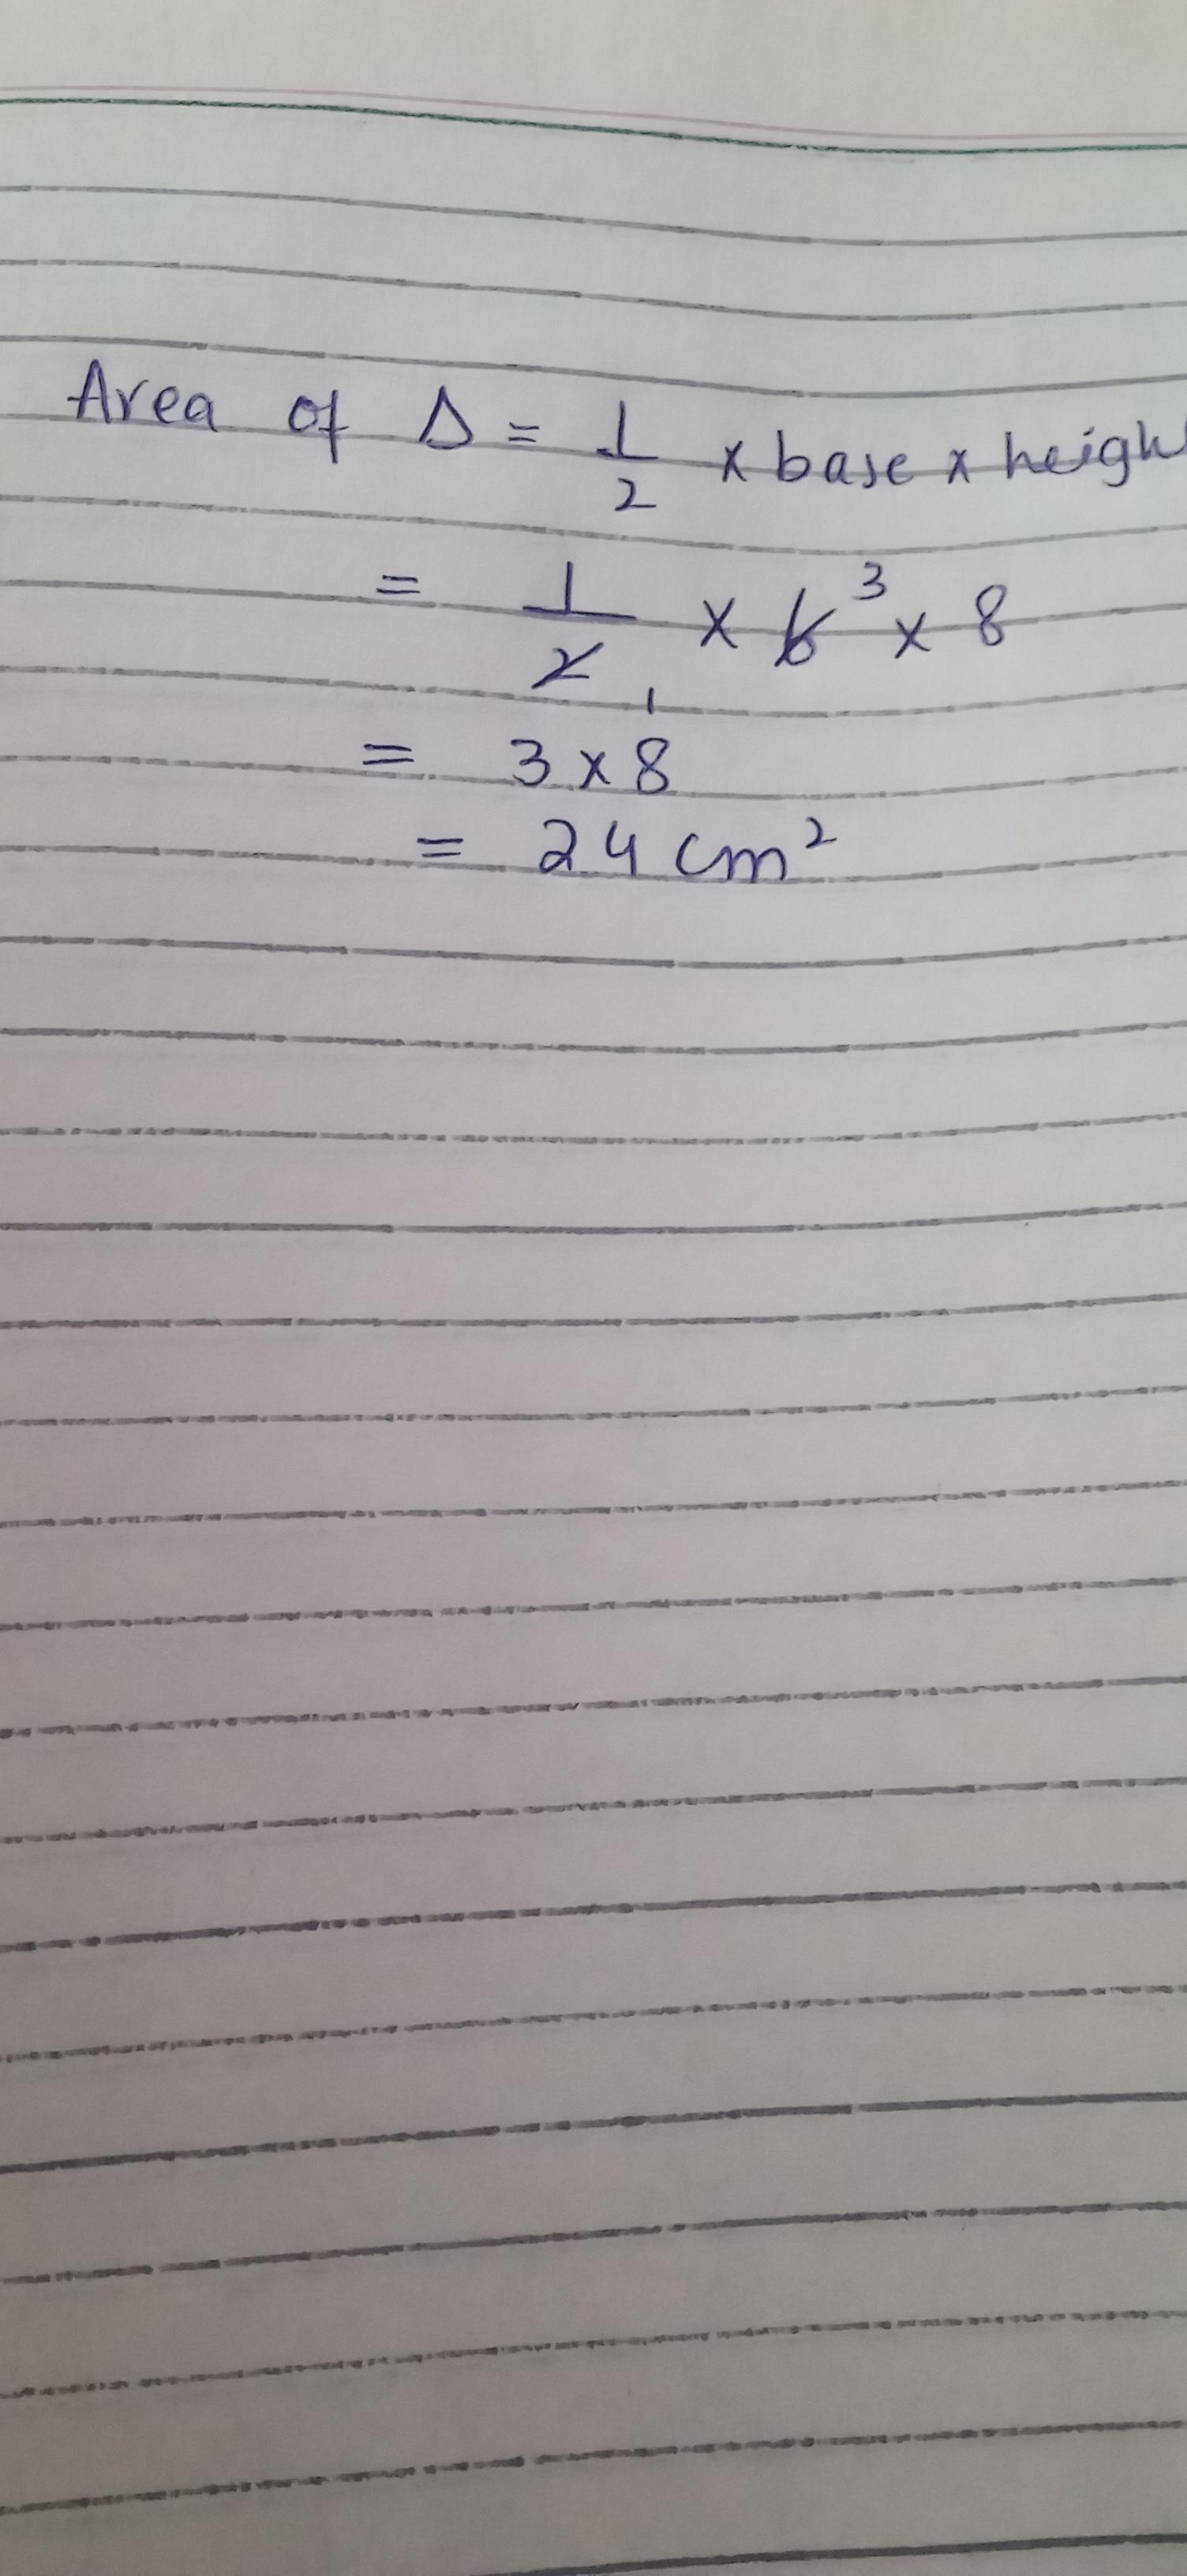 Area of Δ = 1/2 x base x height
= 1/2 1 x 6 3 x 8
= 3 x 8
= 24 cm²